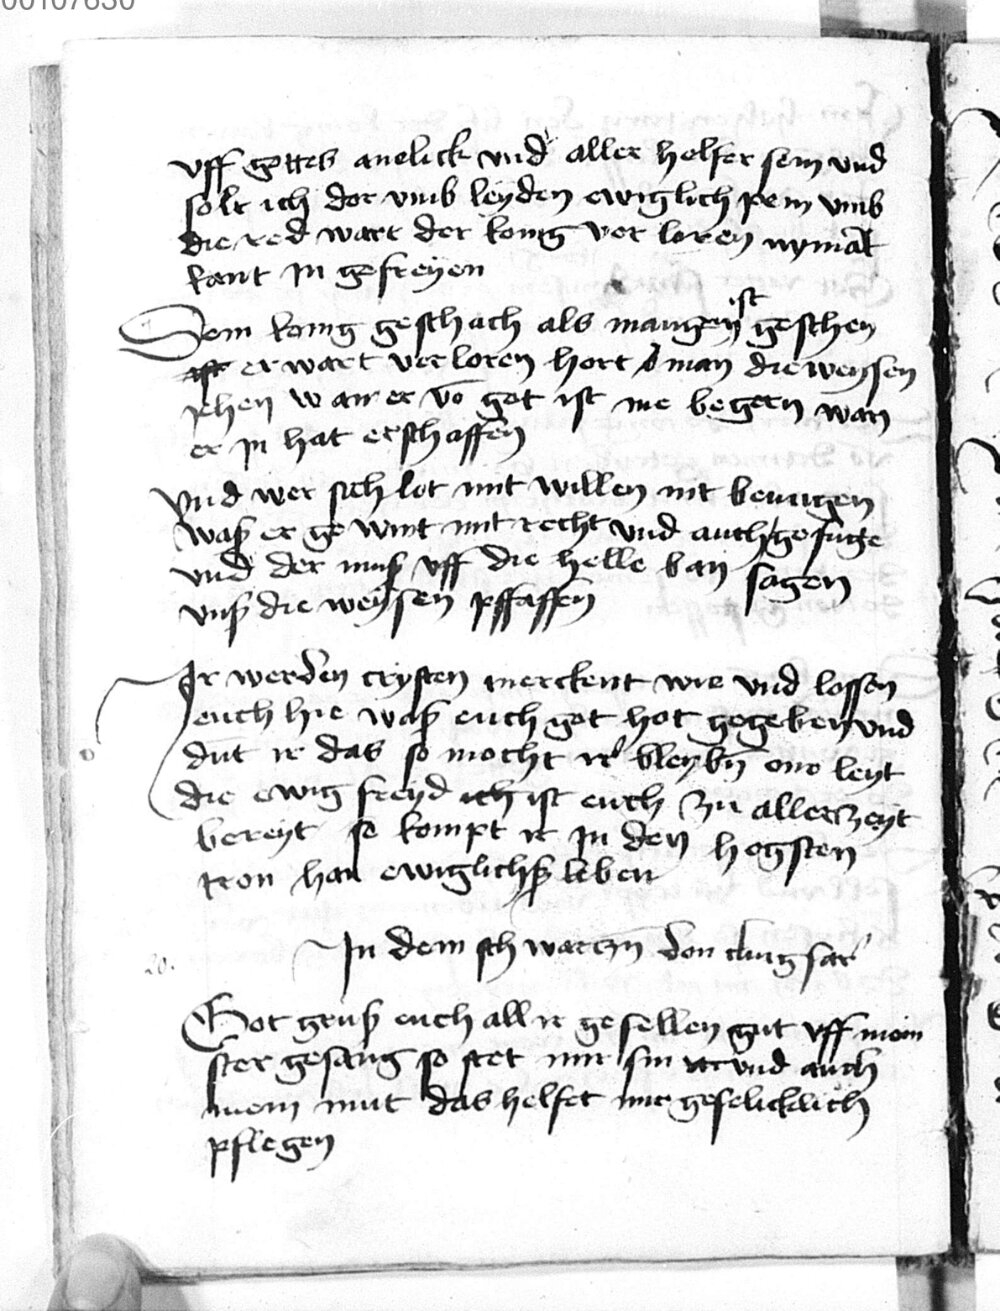 00107630
vff gottes anelick vnd aller helfer sein vnd
solt ich dor vmb leyden ewiglich pein vmb
die red wart der konig ver loren nymat
kant in gefreyen
Dem konig geschach als mangen ist geschen
er wart verloren hort man die weysen
jehen wan er vō got ist nie begern wan
er in hat erschaffen
Vnd wer sich lot mit willen nit benugen
waß er ge wint mit recht vnd auch gefuge
vnd der muß vff die helle ban sagen
vnß die weysen pffaffen
Ir werden crysten merckent wie vnd lossen
euch hie waß euch got hot gegeben vnd
dut ir das so mocht ir bleybn one leyt
die ewig freyd ist euch zu aller zeyt
bereyt so kompt ir in den hogsten
tron han ewiglichß leben
20.
In dem schwarczn don clingsar
Got gruß euch all ir gesellen gut vff mein
ster gesang so stet mir sin vnd auch
muem mut das helfet mir gefelicklich
pflegen